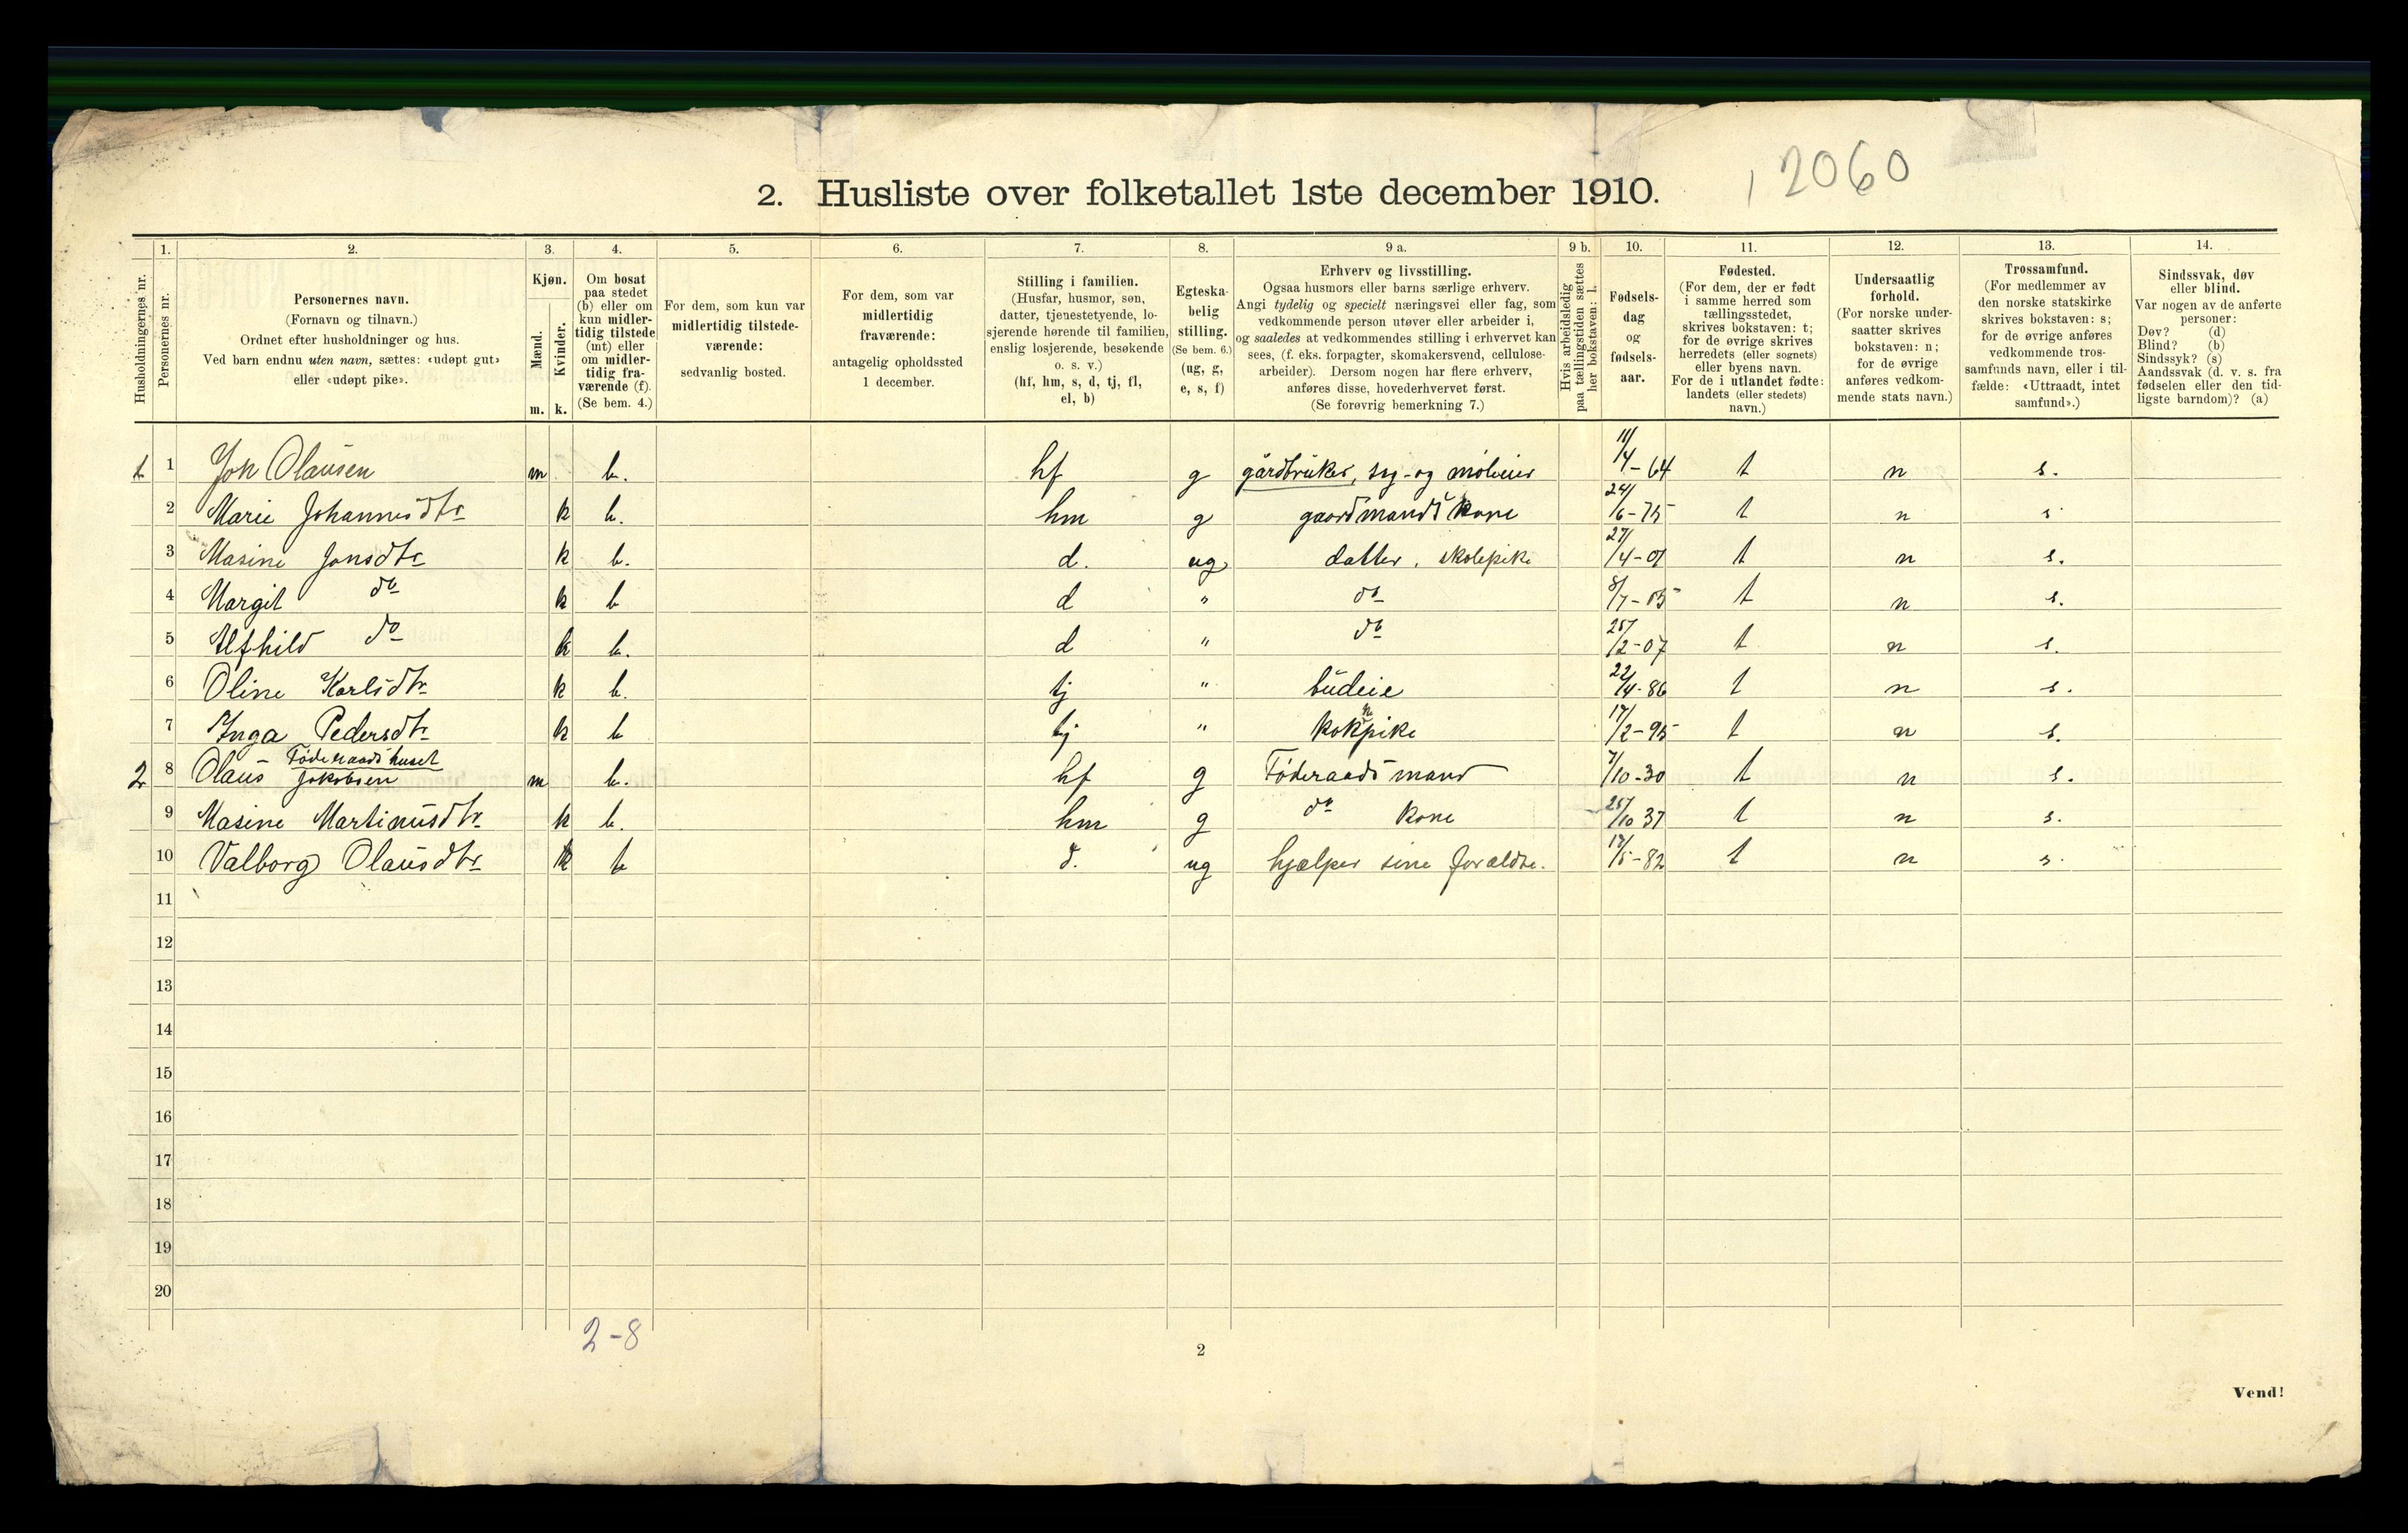 2060
2. Husliste over folketallet 1ste december 1910.
1. 2. 3. 4. 5. 6. 7. 8. 9 a. 9 b. 10. 11. 12. 13. 14.
Husholdningernes nr.
Personernes nr.
Personernes navn.
(Fornavn og tilnavn.)
Ordnet efter husholdninger og hus.
Ved barn endnu uten navn, sættes: «udøpt gut»
eller «udøpt pike».
Kjøn.
Mænd.
Kvinder.
m. k.
Om bosat
paa stedet
(b) eller om
kun midler-
tidig tilstede
(mt) eller
om midler-
tidig fra-
værende (f).
(Se bem. 4.)
For dem, som kun var
midlertidig tilstede-
værende:
sedvanlig bosted.
For dem, som var
midlertidig
fraværende:
antagelig opholdssted
1 december.
Stilling i familien.
(Husfar, husmor, søn,
datter, tjenestetyende, lo-
sjerende hørende til familien,
enslig losjerende, besøkende
o. s. v.)
(hf, hm, s, d, tj, fl,
el, b)
Egteska-
belig
stilling.
(Se bem. 6.)
(ug, g,
e, s, f)
Erhverv og livsstilling.
Ogsaa husmors eller barns særlige erhverv.
Angi tydelig og specielt næringsvei eller fag, som
vedkommende person utøver eller arbeider i,
og saaledes at vedkommendes stilling i erhvervet kan
sees, (f. eks. forpagter, skomakersvend, cellulose-
arbeider). Dersom nogen har flere erhverv,
anføres disse, hovederhvervet først.
(Se forøvrig bemerkning 7.)
Hvis arbeidsledig
paa tællingstiden sættes
her bokstaven: l.
Fødsels-
dag
og
fødsels-
aar.
Fødested.
(For dem, der er født
i samme herred som
tællingsstedet,
skrives bokstaven: t;
for de øvrige skrives
herredets (eller sognets)
eller byens navn.
For de i utlandet fødte:
landets (eller stedets)
navn.)
Undersaatlig
forhold.
(For norske under-
saatter skrives
bokstaven: n;
for de øvrige
anføres vedkom-
mende stats navn.)
Trossamfund.
(For medlemmer av
den norske statskirke
skrives bokstaven: s;
for de øvrige anføres
vedkommende tros-
samfunds navn, eller i til-
fælde: «Uttraadt, intet
samfund».)
Sindssvak, døv
eller blind.
Var nogen av de anførte
personer:
Døv? (d)
Blind? (b)
Sindssyk? (s)
Aandssvak (d. v. s. fra
fødselen eller den tid-
ligste barndom)? (a)
1 1 Jon Olausen m b. hf g gårdbruker, sag- og mølleier 11/4-64 t n s.
2 Marie Johannesdtr k b. hm g gaardmands kone 24/6-75 t n s
3 Masine Jonsdtr k b. d. ug datter, skolepike 27/4-01 t n s.
4 Margit do k b d " do 8/7-05 t n s.
5 Alfhild do k b. d " do 25/2-07 t n s.
6 Oline Karlsdtr k b. tj " budeie 22/4-86 t n s.
7 Inga Pedersdtr k b tj " kokkepike 17/2-95 t n s.
Føderaadshuset
2 8 Olaus Jakobsen m b. hf g Føderaadsmand 7/10-30 t n s.
9 Masine Martinusdtr k b. hm g do kone 25/10 37 t n s.
10 Valborg Olausdtr k b d. ug hjælper sine forældre. 17/5-82 t n s.
11
12
13
14
15
16
17
18
19
20
2-8
2
Vend!